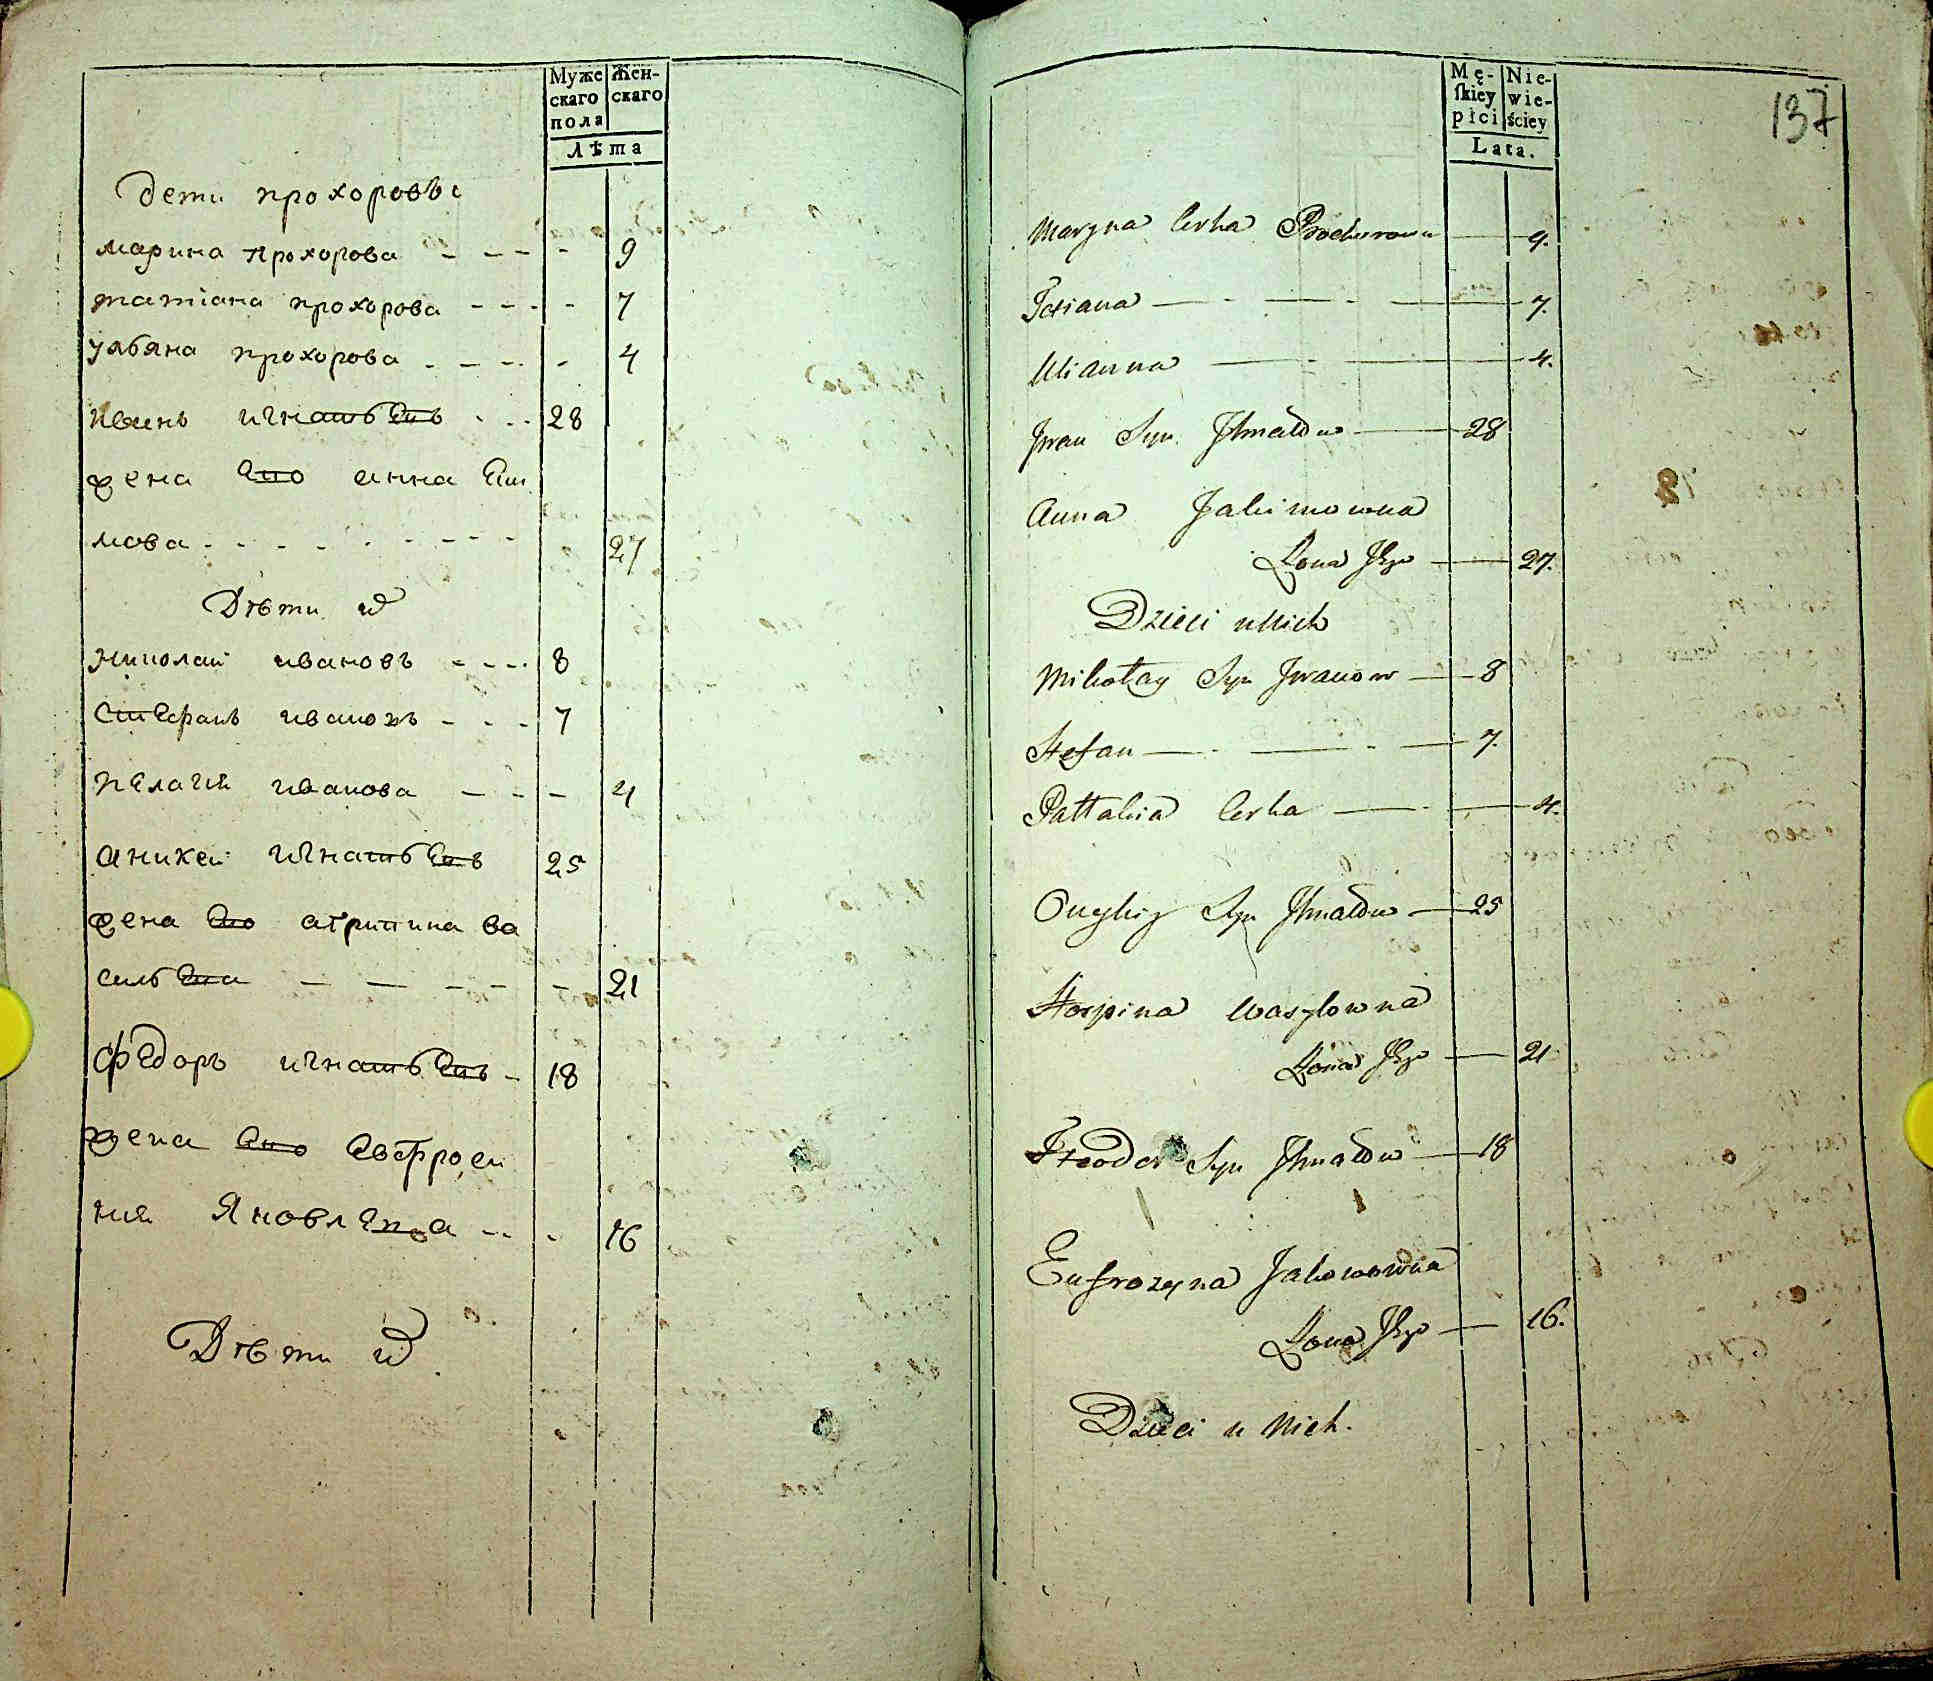 Муже
скаго
пола
Жен-
скаго
Лѣта
Дети прохоровы
марина прохорова - - - - 9
татiана прохорова - - - - 7
ульяна прохорова - - - - 4
игнатьевъ - - 28
жена ево анна Еки
мова - - - - - - - - 27
Дѣти их
николай ивановъ - - - 8
Стефанъ ивановъ - - - 7
пелагия иванова - - - 4
аникеи игнатьевъ 25
жена ево агрипина ва
сильева - - - - - 21
Федоръ игнатьевъ - 18
жена ево Евфроси
ния Яковлева - - - 16
Дѣти их
137
Mę-
skiey
płci
Nie-
wie-
ściey
Lata.
Maryna Corka Prochorowa 9.
Tatiana 7.
Ulianna 4.
Jwan Syn 28
Anna Jakimowna
Żona Jego 27.
Dzieci u Nich
Mikołay Syn Jwanow 8
Stefan 7.
Corka 4.
Syn 25
Wasylowna
Żona Jego 21
Syn 18
Eufrozyna Jakowowna
Żona Jego 16.
Dzieci u Nich.